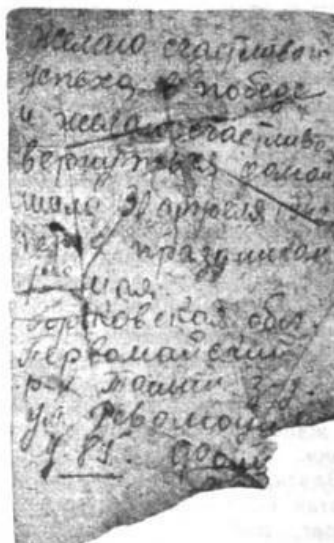 Желаю счастливой
успеха в победе
и желаю счастливо
вернуться домой
30 апреля
праздником
мая
Горьковская обл.
Первомайский
р-н Ташин з-д.
ул. Револю
д. 85.